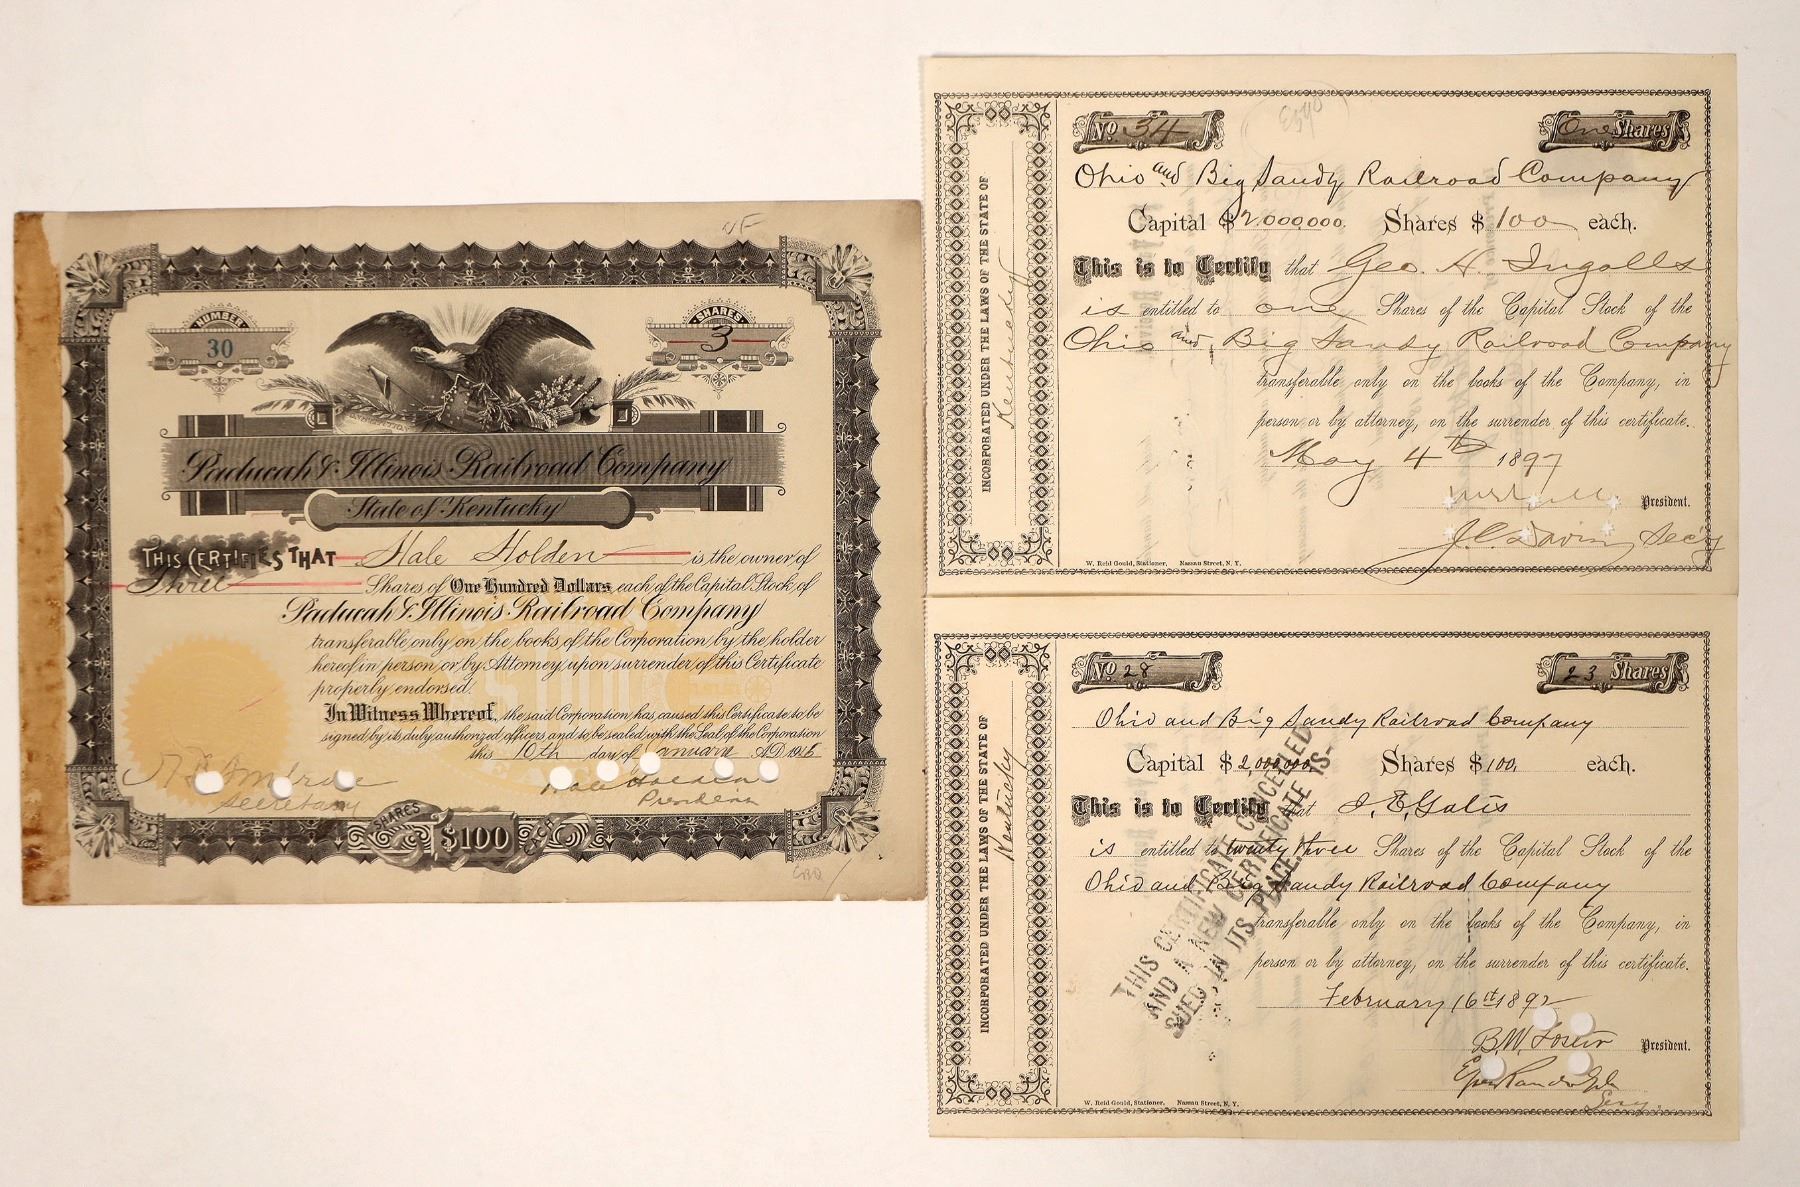 NUMBER
30
SHARES
3
Paducah & Illinois Railroad Company
State of Kentucky
THIS CERTIFIES THAT Hale Holden is the owner of
Three Shares of One Hundred Dollars each of the Capital Stock of
Paducah & Illinois Railroad Company
transferable only on the books of the Corporation by the holder
hereof in person or by Attorney upon surrender of this Certificate
properly endorsed.
In Witness Whereof, the said Corporation has caused this Certificate to be
signed by its duly authorized officers and to be sealed with the Seal of the Corporation
this 10th day of January A.D. 191
Secretary
Hale Holden
President
SHARES $100 EACH
No 34
One Shares
Ohio and Big Sandy Railroad Company
Capital $2.000000. Shares $100 each.
This is to Certify that Geo. H. Ingalls
is entitled to one Shares of the Capital Stock of the
Ohio and Big Sandy Railroad Company
transferable only on the books of the Company, in
person or by attorney, on the surrender of this certificate.
May 4th 1897
President.
Sec'y
W. Reid Gould, Stationer, Nassau Street, N. Y.
INCORPORATED UNDER THE LAWS OF THE STATE OF
Kentucky
No 28
23 Shares
Ohio and Big Sandy Railroad Company
Capital $2,000,000 Shares $100. each.
This is to Certify that J. E. Gates
is entitled to twenty three Shares of the Capital Stock of the
Ohio and Big Sandy Railroad Company
transferable only on the books of the Company, in
person or by attorney, on the surrender of this certificate.
February 16th 1892
B. W. Foster President.
Epes Randolph
Secy.
W. Reid Gould, Stationer, Nassau Street, N. Y.
INCORPORATED UNDER THE LAWS OF THE STATE OF
Kentucky
THIS CERTIFICATE CANCELED
AND A NEW CERTIFICATE IS-
SUED IN ITS PLACE.